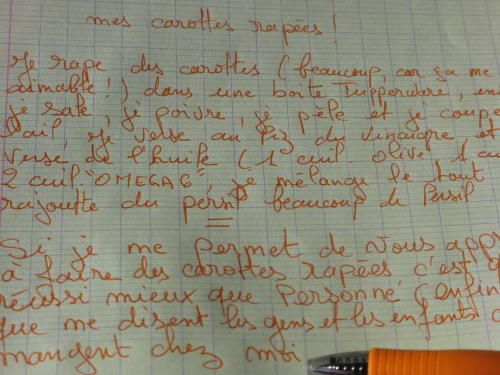 mes carottes rapées !
Je rape des carottes (beaucoup, car ça me
aimable !) dans une boite Tupperware,
je sale, j'poivre, je pèle et je coupe
l'ail, je verse au pif du vinaigre et
verse de l'huile (1 cuil. olive 1
2 cuil "OMEGA 6", je mélange le tout
rajoutte du persil beaucoup de Persil
Si je me permet de vous app
à faire des carottes rapées c'est
réussi mieux que Personne (enfin
que me disent les gens et les enfants
mangent chez moi